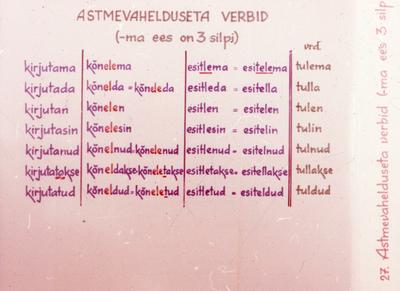 ASTMEVAHELDUSETA VERBID
(-ma ees on 3 silpi)
vrd.
kirjutama kõnelema esitlema = esitelema tulema
kirjutada kõnelda = kõneleda esitleda = esitella tulla
kirjutan kõnelen esitlen = esitelen tulen
kirjutasin kõnelesin esitlesin = esitelin tulin
kirjutanud kõnelnud = kõnelenud esitlenud = esitelnud tulnud
kirjutatakse kõneldakse = kõneletakse esitletakse = esitellakse tullakse
kirjutatud kõneldud = kõneletud esitletud = esiteldud tuldud
27. Astmevahelduseta verbid (-ma ees 3 silp